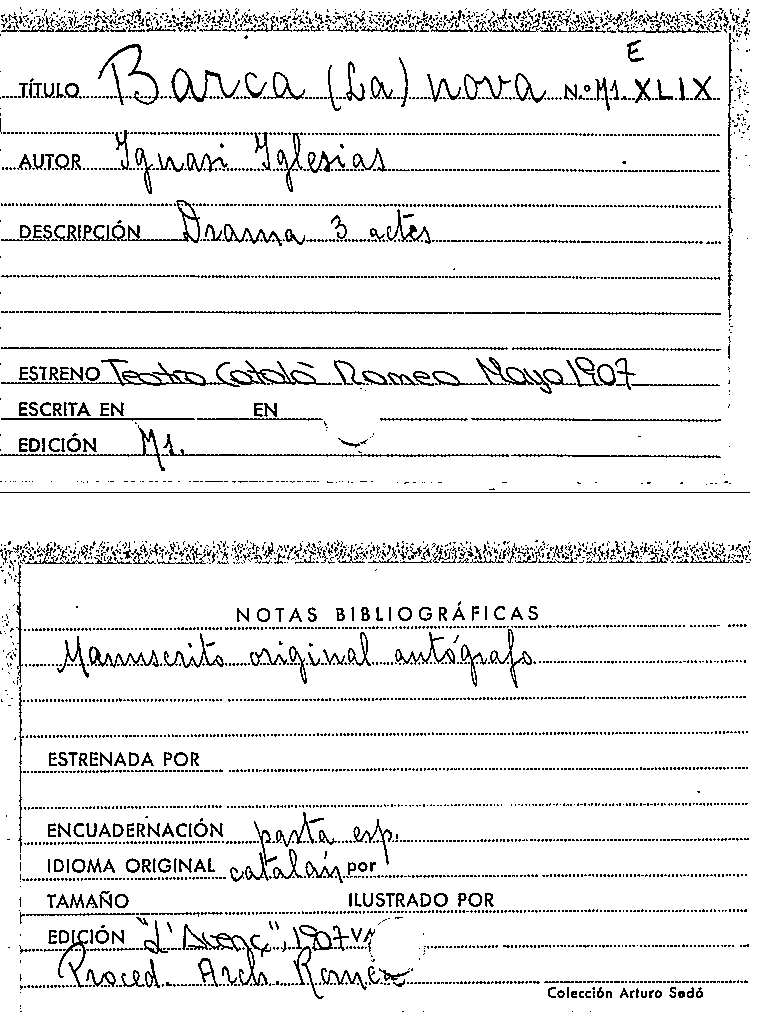 E
TÍTULO Barca (La) nova N.º M1. XLIX
AUTOR Ignasi Iglesias
DESCRIPCIÓN Drama 3 actes
ESTRENO Teatro Català Romea Mayo 1907
ESCRITA EN EN
EDICIÓN M1.
NOTAS BIBLIOGRÁFICAS
Manuscrito original autógrafo
ESTRENADA POR
ENCUADERNACIÓN pasta esp.
IDIOMA ORIGINAL catalán por
TAMAÑO ILUSTRADO POR
EDICIÓN "L'Avenç", 1907
Proced. Arch. Romea
Colección Arturo Sedó